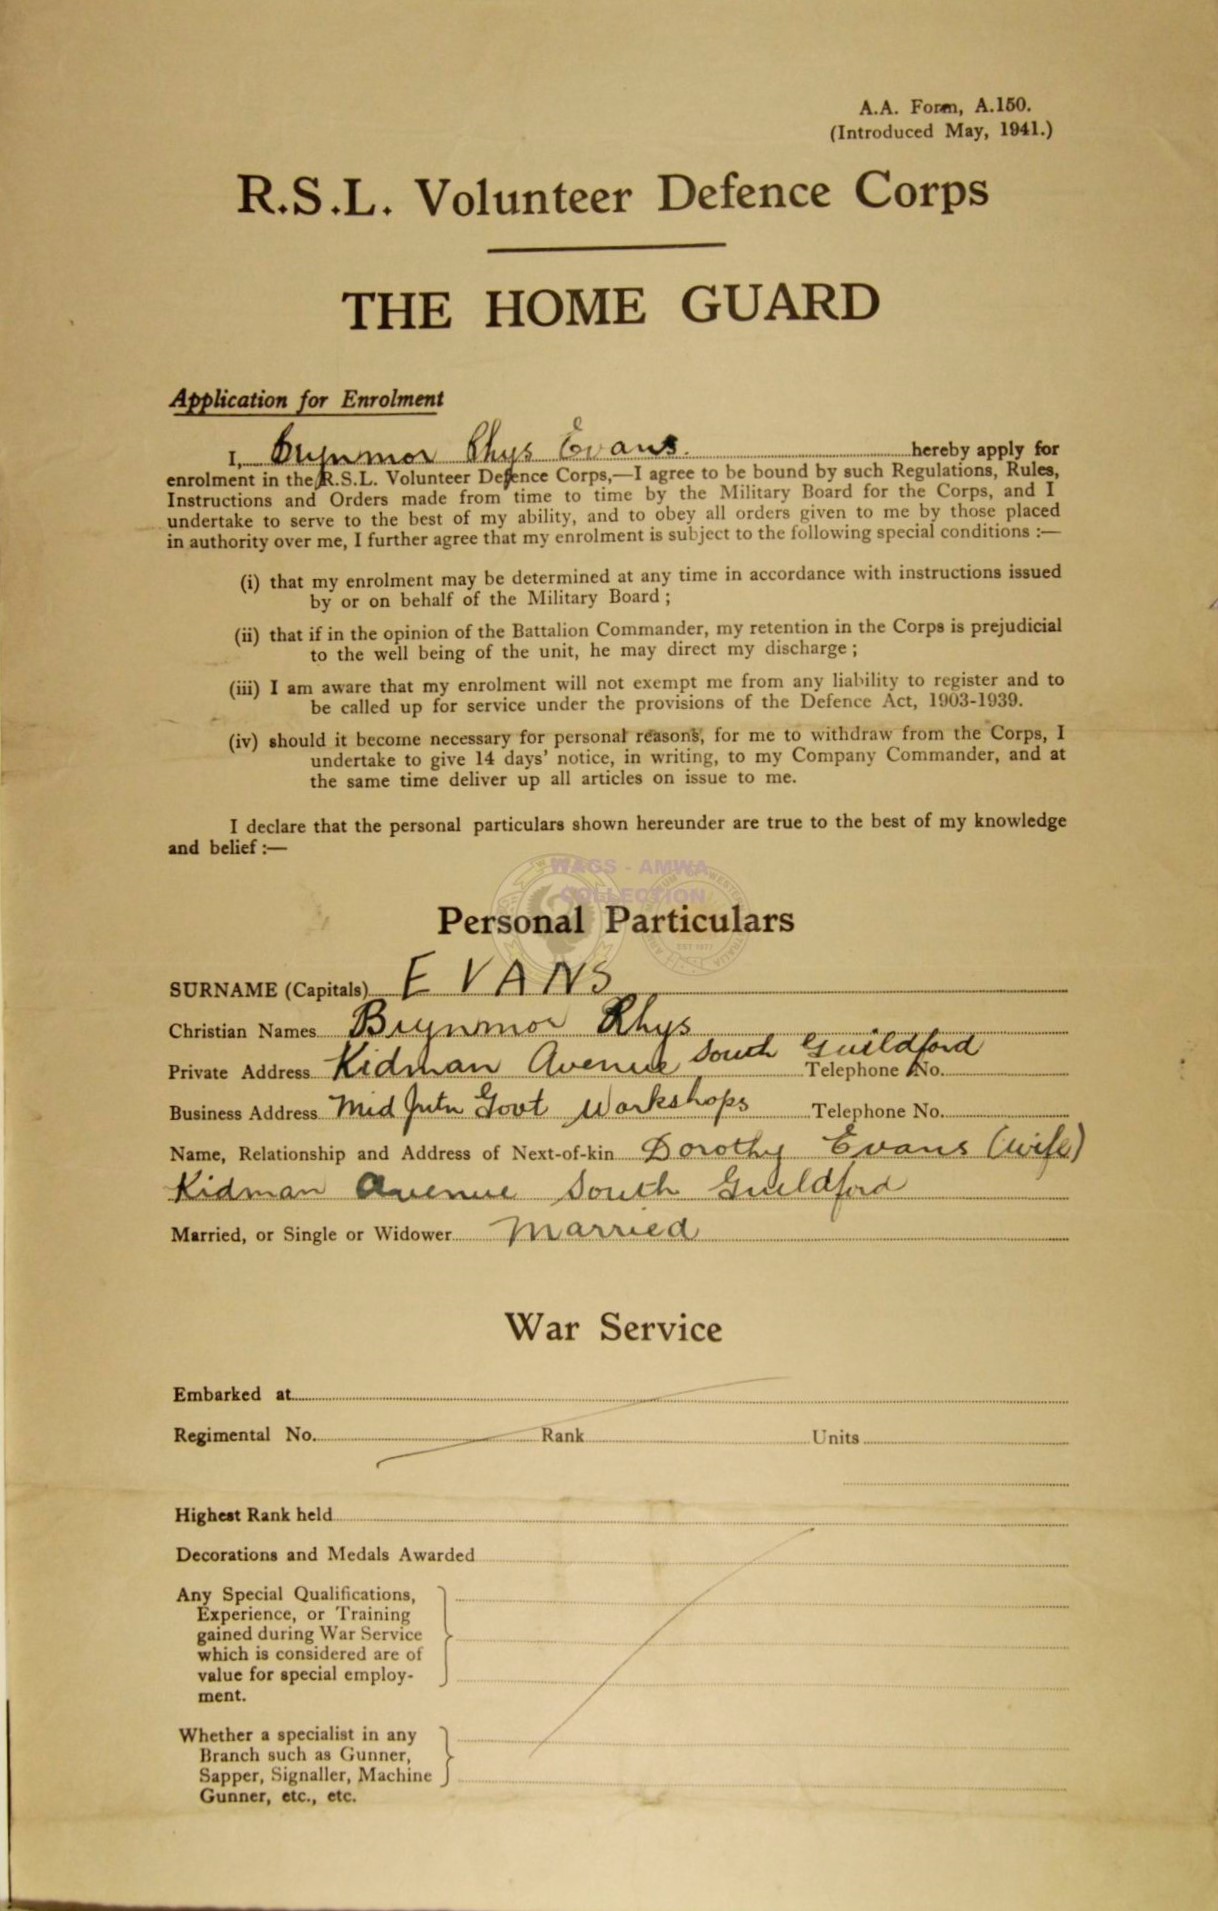 A.A. Form, A.150.
(Introduced May, 1941.)
R.S.L. Volunteer Defence Corps
THE HOME GUARD
Application for Enrolment
I, Brynmor Rhys Evans. hereby apply for
enrolment in the R.S.L. Volunteer Defence Corps,—I agree to be bound by such Regulations, Rules,
Instructions and Orders made from time to time by the Military Board for the Corps, and I
undertake to serve to the best of my ability, and to obey all orders given to me by those placed
in authority over me, I further agree that my enrolment is subject to the following special conditions :—
(i) that my enrolment may be determined at any time in accordance with instructions issued
by or on behalf of the Military Board ;
(ii) that if in the opinion of the Battalion Commander, my retention in the Corps is prejudicial
to the well being of the unit, he may direct my discharge ;
(iii) I am aware that my enrolment will not exempt me from any liability to register and to
be called up for service under the provisions of the Defence Act, 1903-1939.
(iv) should it become necessary for personal reasons, for me to withdraw from the Corps, I
undertake to give 14 days' notice, in writing, to my Company Commander, and at
the same time deliver up all articles on issue to me.
I declare that the personal particulars shown hereunder are true to the best of my knowledge
and belief :—
WAGS - AMWA
COLLECTION
Personal Particulars
SURNAME (Capitals) EVANS
Christian Names Brynmor Rhys
Private Address Kidman Avenue South Guildford Telephone No.
Business Address Mid Jutn Govt Workshops Telephone No.
Name, Relationship and Address of Next-of-kin Dorothy Evans (wife)
Kidman Avenue South Guildford
Married, or Single or Widower Married
War Service
Embarked at
Regimental No. Rank Units
Highest Rank held
Decorations and Medals Awarded
Any Special Qualifications,
Experience, or Training
gained during War Service
which is considered are of
value for special employ-
ment.
Whether a specialist in any
Branch such as Gunner,
Sapper, Signaller, Machine
Gunner, etc., etc.